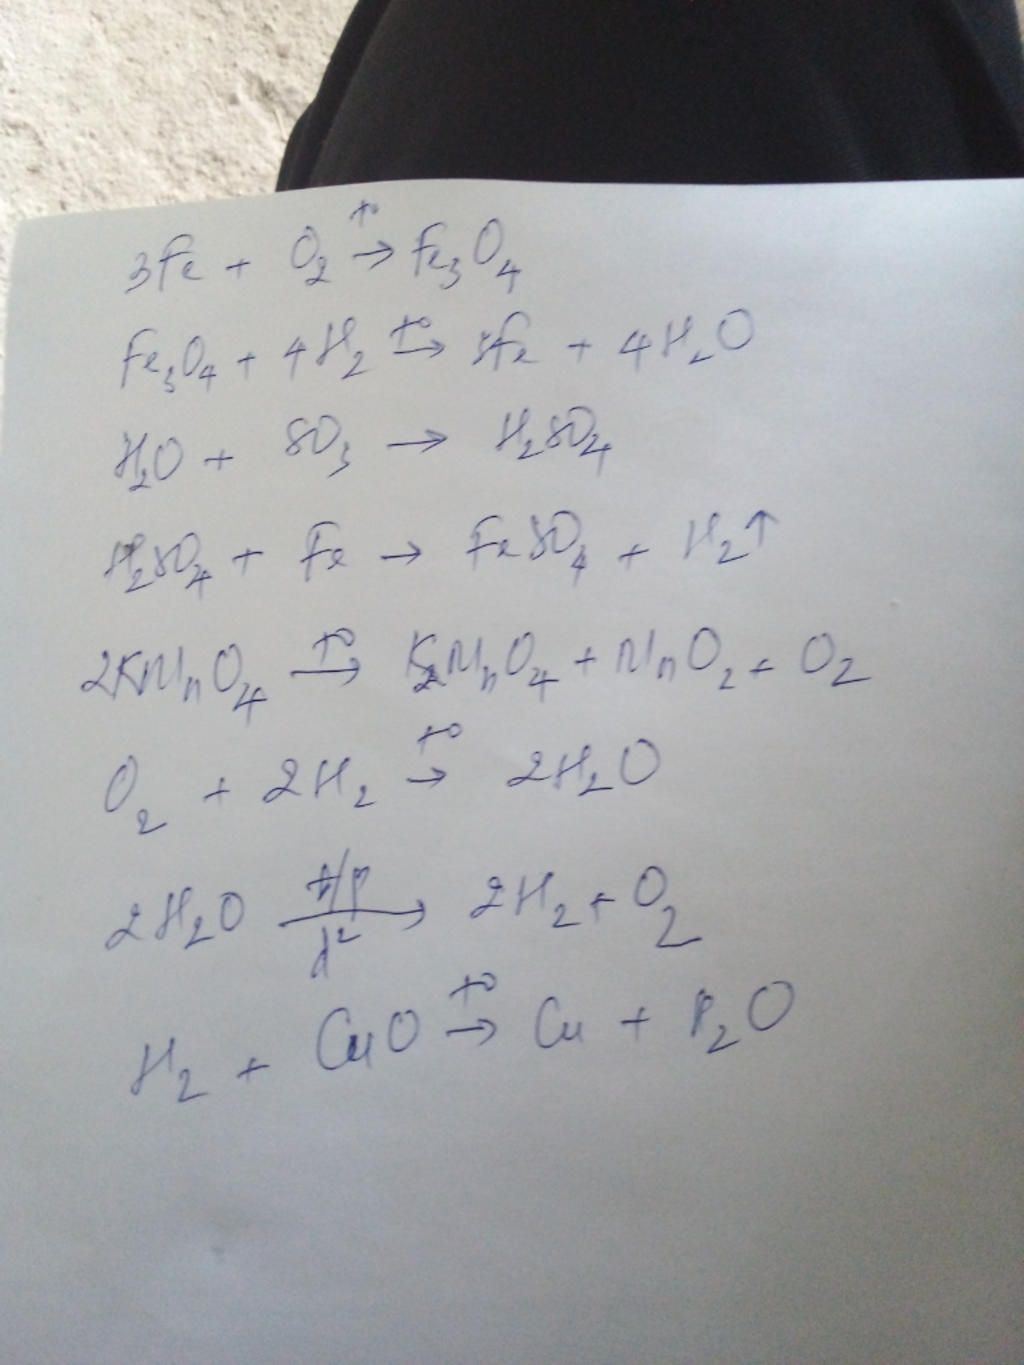 3Fe + O₂ →(t⁰) Fe₃O₄
Fe₃O₄ + 4H₂ →(t⁰) 3Fe + 4H₂O
H₂O + SO₃ → H₂SO₄
H₂SO₄ + Fe → FeSO₄ + H₂↑
2KMnO₄ →(t⁰) K₂MnO₄ + MnO₂ + O₂
O₂ + 2H₂ →(t⁰) 2H₂O
2H₂O → 2H₂ + O₂
H₂ + CuO →(t⁰) Cu + H₂O